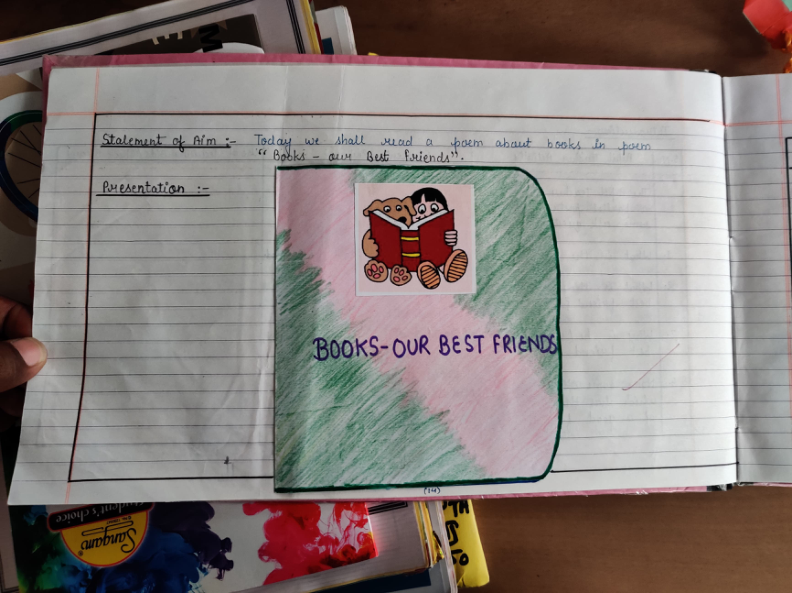 Statement of Aim :- Today we shall read a poem about books in poem
"Books - our Best Friends".
Presentation :-
BOOKS-OUR BEST FRIENDS
(14)
Student's choice
Sangam